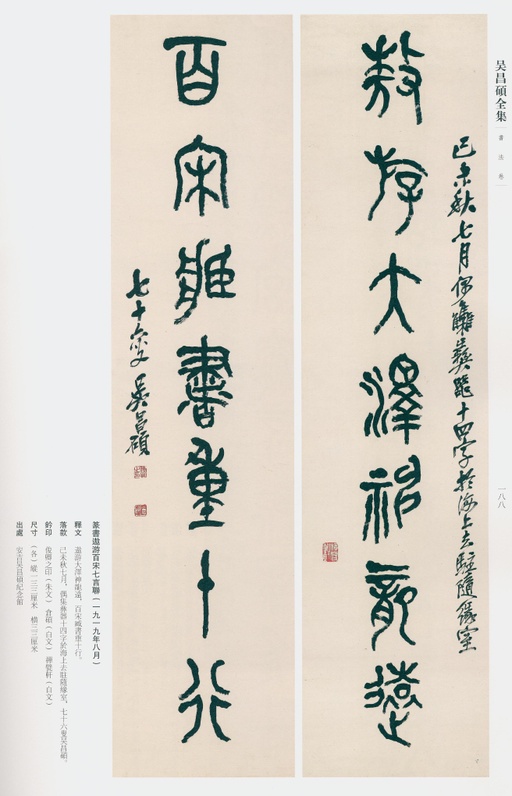 吴昌碩全集
書法卷
一八八
己未秋七月偶集彝器十四字於海上去駐隨緣室
敖游大澤神龍遠
百宋臧書重十行
七十六叟吳昌碩
篆書遨游百宋七言聯（一九一九年八月）
釋文 遨游大澤神龍遠，百宋臧書重十行。
落款 己未秋七月，偶集彝器十四字於海上去駐隨緣室，七十六叟吳昌碩。
鈐印 俊卿之印（朱文） 倉碩（白文） 禪甓軒（白文）
尺寸 （各）縱一三三厘米 橫三三厘米
出處 安吉吳昌碩紀念館